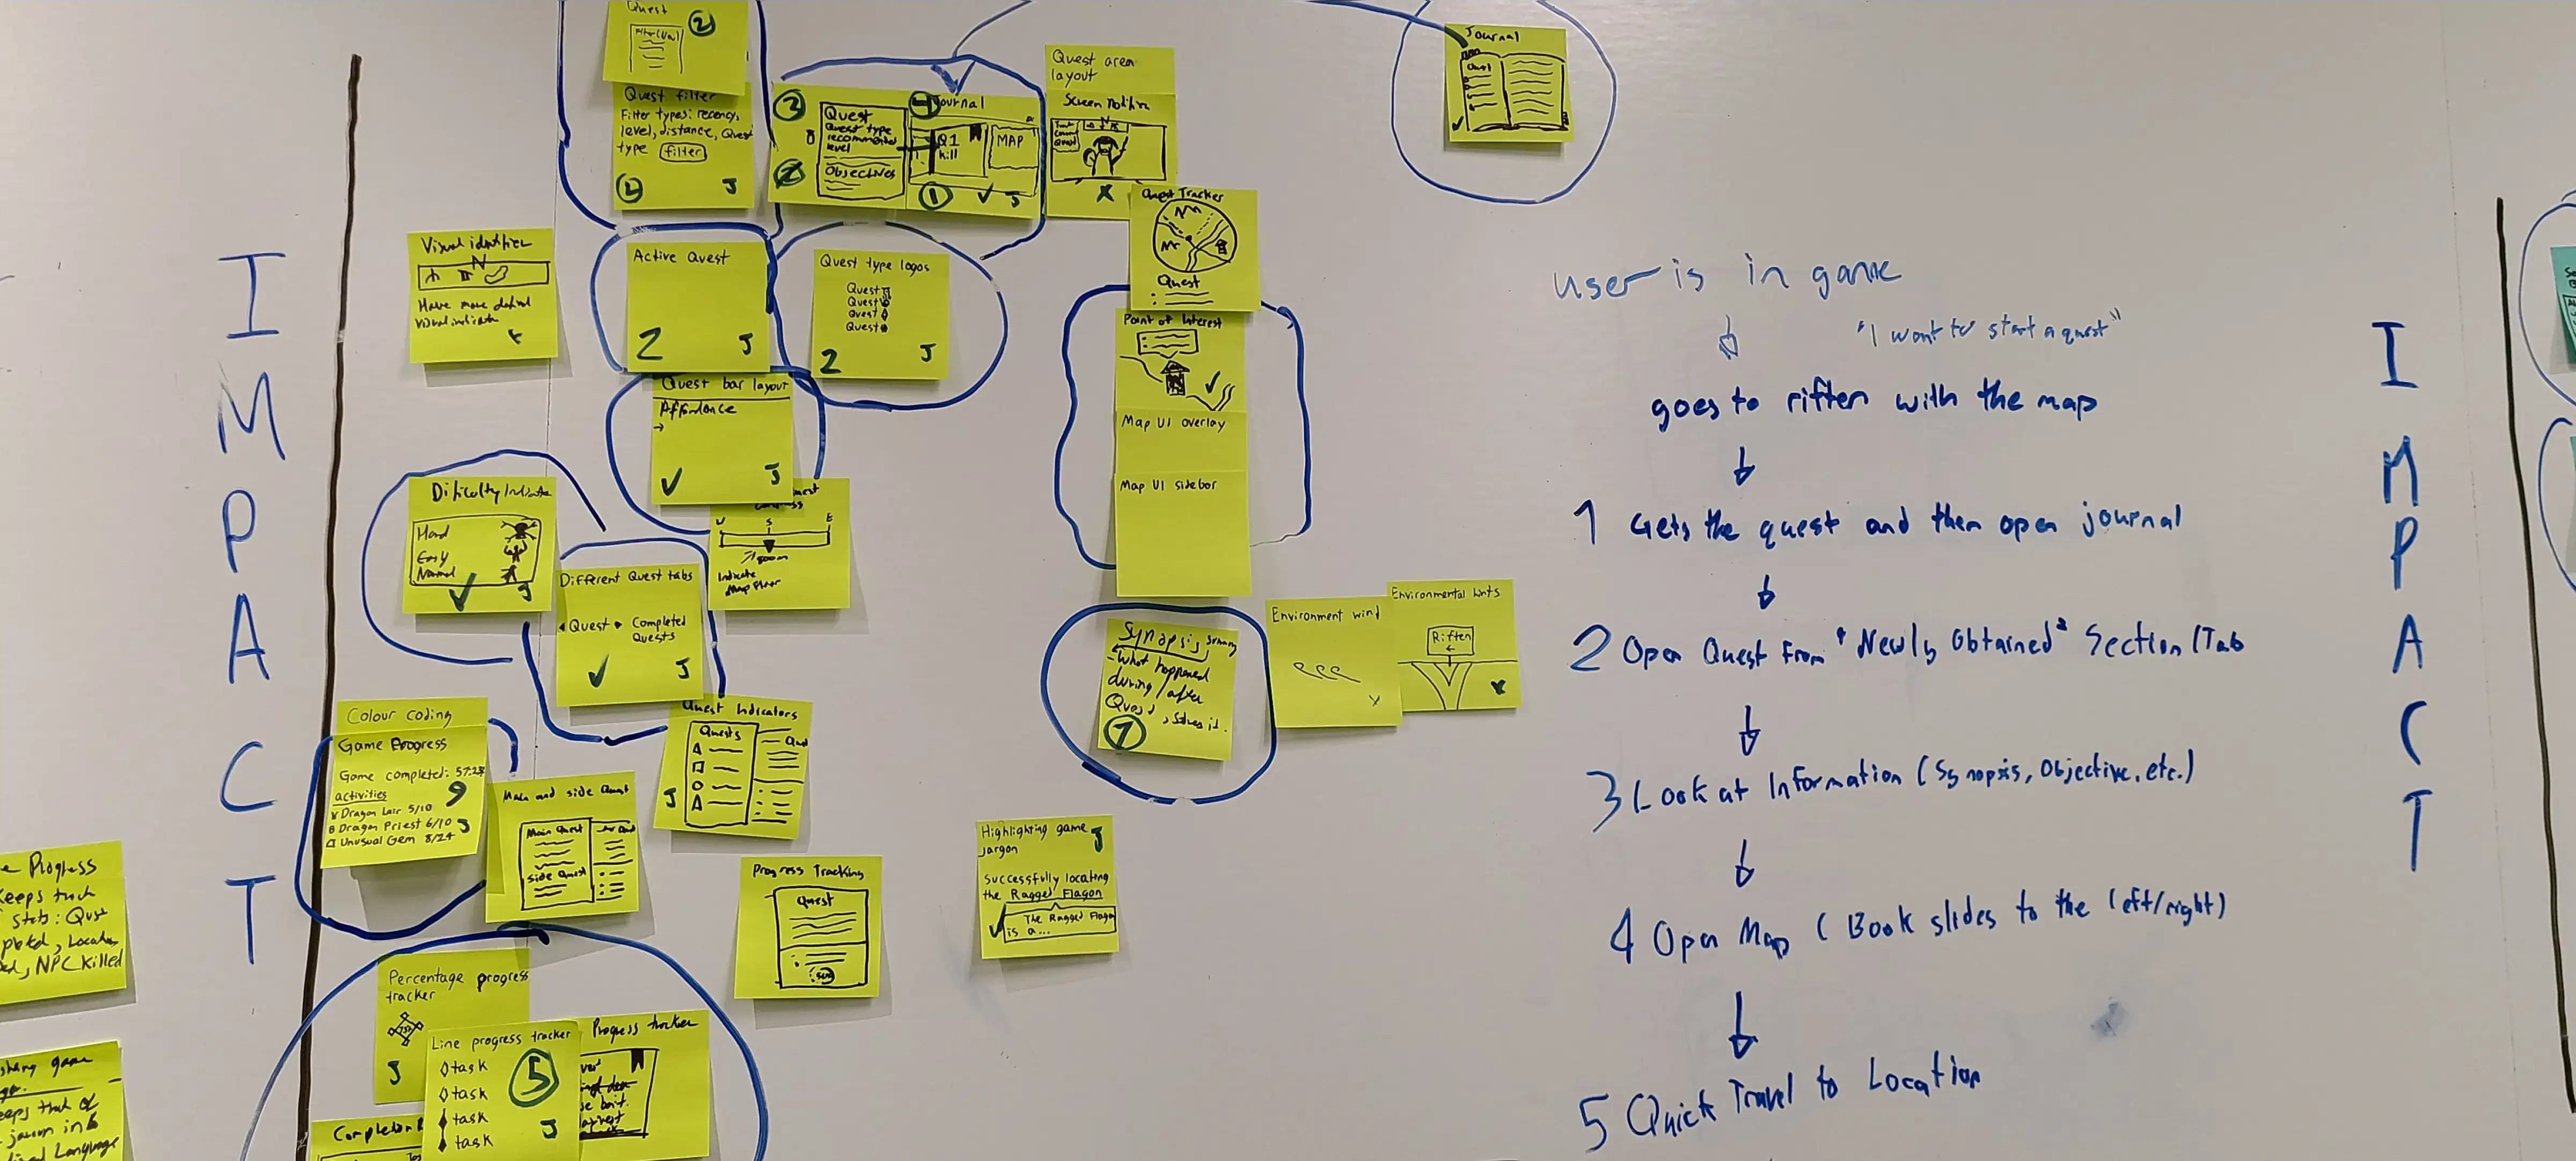 IMPACT
Quest
2
Filter (New)
Quest filter
Filter types: recency,
level, distance, Quest
type filter
2
J
3
Quest
Quest type
recommended
level
Objectives
4
Journal
Q1
kill
MAP
1
J
Quest area
layout
Screen notifire
X
Journal
Quest
Quest Tracker
Quest
Visual identifier
N
Have more defined
visual indicator
Active Quest
2
J
Quest type logos
Quest
Quest
Quest
Quest
2
J
Point of Interest
Map UI overlay
Map UI sidebar
Quest bar layout
Affordance
→
J
S
E
Indicate
Map Floor
Dificulty Indicator
Hard
Easy
Normal
J
Different Quest tabs
Quest
Completed
Quests
J
Synopsis
- What happened
during / after
Quest, solves it.
7
Environment wind
x
Environmental hints
Riften
←
x
Colour coding
Game Progress
Game completed: 57.2%
activities
9
Dragon Lair 5/10
Dragon Priest 6/10
Unusual Gem 8/24
J
Quest Indicators
Quests
J
Main and side Quest
Main Quest
side Quest
Progress Tracking
Quest
Highlighting game
jargon
J
Successfully locating
the Ragged Flagon
The Ragged Flagon
is a...
e Progress
Keeps track
stats: Qust
pleted, Location
ed, NPC Killed
game
eeps that of
jargon into
Language
Percentage progress
tracker
J
Line progress tracker
task
task
task
task
5
J
Progress tracker
Completion
user is in game
"I want to start a quest"
goes to riften with the map
1 Gets the quest and then open journal
2 Open Quest from "Newly Obtained" Section/Tab
3 Look at Information (Synopsis, Objective, etc.)
4 Open Map (Book slides to the left/right)
5 Quick Travel to Location
IMPACT